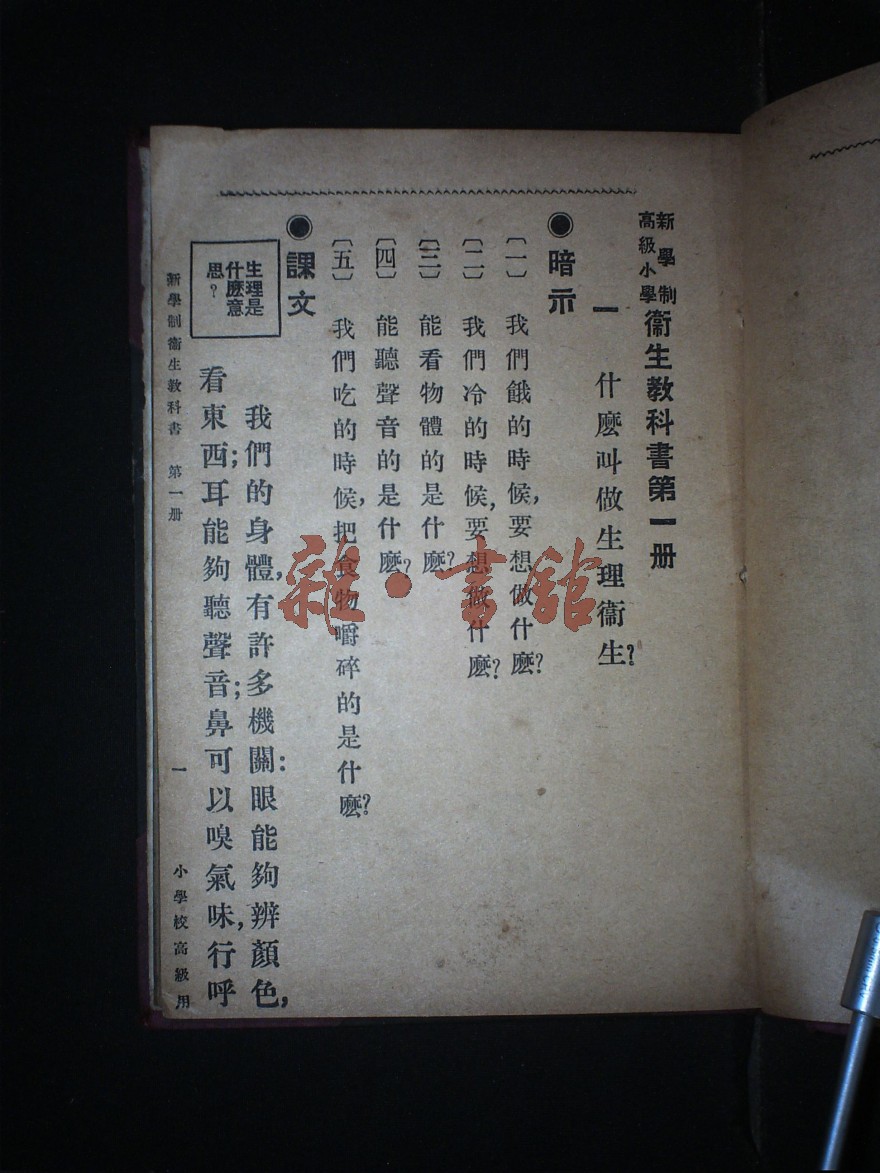 新學制
高級小學
衞生教科書第一册
一 什麽叫做生理衞生?
●暗示
〔一〕 我們餓的時候,要想做什麽?
〔二〕 我們冷的時候,要想做什麽?
〔三〕 能看物體的是什麽?
〔四〕 能聽聲音的是什麽?
〔五〕 我們吃的時候,把食物嚼碎的是什麽?
●課文
生理是
什麽意
思?
我們的身體,有許多機關:眼能夠辨顏色,
看東西;耳能夠聽聲音;鼻可以嗅氣味,行呼
新學制衞生教科書 第一册 一 小學校高級用
雜·書館